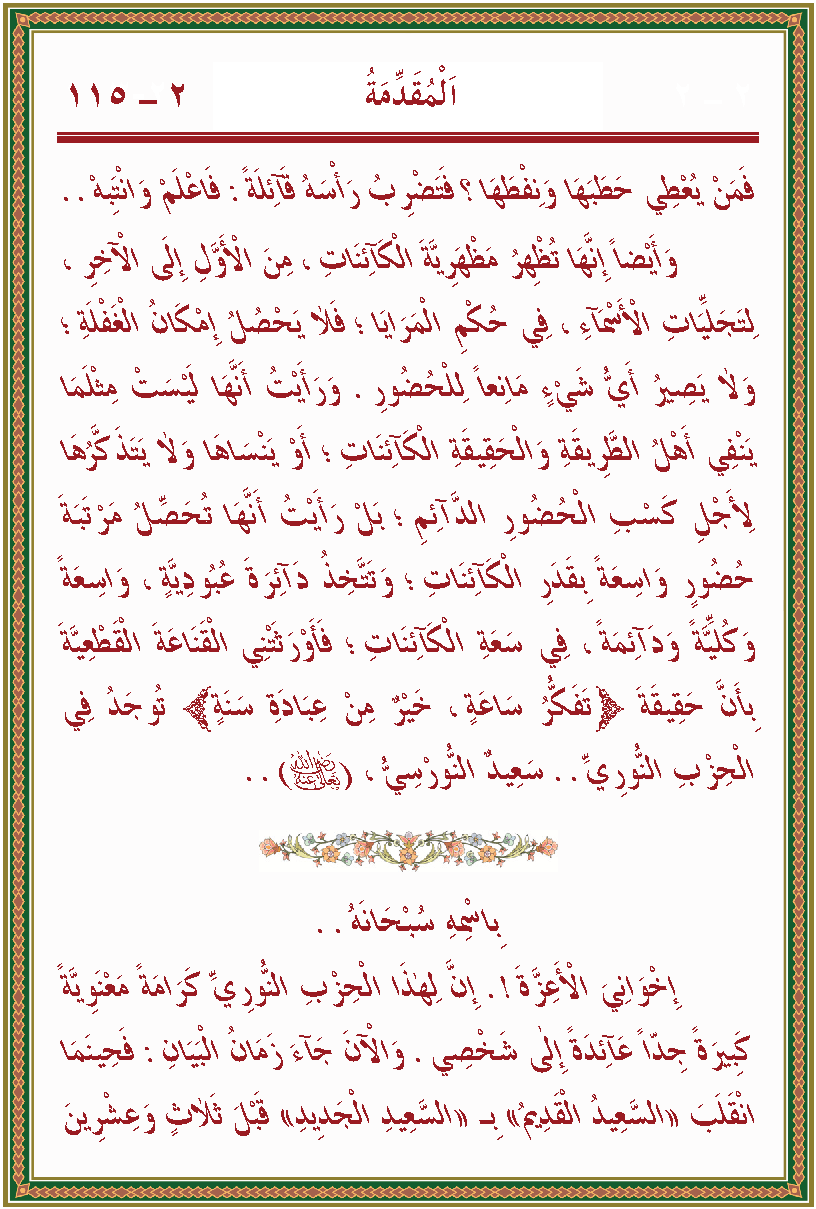 ٢ ــ ١١٥ اَلْمُقَدِّمَةُ
فَمَنْ يُعْطِي حَطَبَهَا وَنِفْطَهَا ؟ فَتَضْرِبُ رَأْسَهُ قَآئِلَةً : فَاعْلَمْ وَانْتَبِهْ . .
وَأَيْضاً إِنَّهَا تُظْهِرُ مَظْهَرِيَّةَ الْكَآئِنَاتِ ، مِنَ الْأَوَّلِ إِلَى الْآخِرِ ،
لِتَجَلِيَّاتِ الْأَسْمَآءِ ، فِي حُكْمِ الْمَرَايَا ؛ فَلَا يَحْصُلُ إِمْكَانُ الْغَفْلَةِ ؛
وَلَا يَصِيرُ أَيُّ شَيْءٍ مَانِعاً لِلْحُضُورِ . وَرَأَيْتُ أَنَّهَا لَيْسَتْ مِثْلَمَا
يَنْفِي أَهْلُ الطَّرِيقَةِ وَالْحَقِيقَةِ الْكَآئِنَاتِ ؛ أَوْ يَنْسَاهَا وَلَا يَتَذَكَّرُهَا
لِأَجْلِ كَسْبِ الْحُضُورِ الدَّآئِمِ ؛ بَلْ رَأَيْتُ أَنَّهَا تُحَصِّلُ مَرْتَبَةَ
حُضُورٍ وَاسِعَةً بِقَدَرِ الْكَآئِنَاتِ ؛ وَتَتَّخِذُ دَآئِرَةَ عُبُودِيَّةٍ ، وَاسِعَةً
وَكُلِّيَّةً وَدَآئِمَةً ، فِي سَعَةِ الْكَآئِنَاتِ ؛ فَأَوْرَثَتْنِي الْقَنَاعَةَ الْقَطْعِيَّةَ
بِأَنَّ حَقِيقَةَ ﴿تَفَكُّرُ سَاعَةٍ ، خَيْرٌ مِنْ عِبَادَةِ سَنَةٍ﴾ تُوجَدُ فِي
الْحِزْبِ النُّورِيِّ . . سَعِيدٌ النُّورْسِيُّ ، (رَضِيَ اللهُ تَعَالَى عَنْهُ) . .
بِاسْمِهِ سُبْحَانَهُ . .
إِخْوَانِيَ الْأَعِزَّةَ ! . إِنَّ لِهٰذَا الْحِزْبِ النُّورِيِّ كَرَامَةً مَعْنَوِيَّةً
كَبِيرَةً جِدّاً عَآئِدَةً إِلٰى شَخْصِي . وَالْآنَ جَآءَ زَمَانُ الْبَيَانِ : فَحِينَمَا
انْقَلَبَ «السَّعِيدُ الْقَدِيمُ» بِـ «السَّعِيدِ الْجَدِيدِ» قَبْلَ ثَلَاثٍ وَعِشْرِينَ